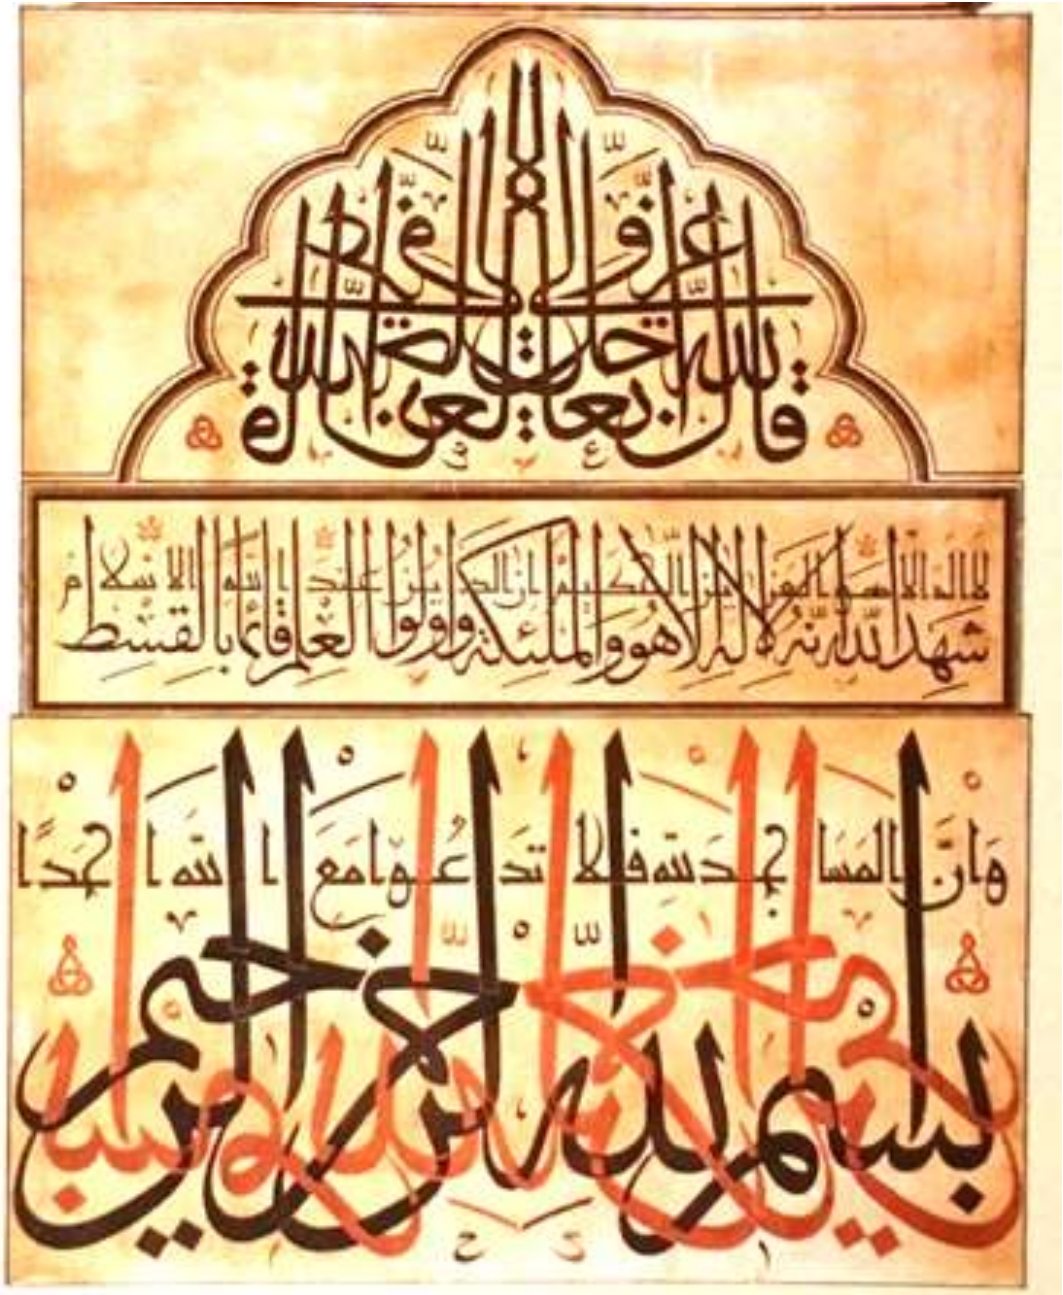 قال الله تعالى
شهد الله انه لا اله الا هو والملئكة واولوا العلم قائما بالقسط
لا اله الا هو العزيز الحكيم ان الدين عند الله الاسلام
وَاَنَّ المَسَاجِدَ لله فلا تَدعُوا مَعَ الله اَحَدًا
بسم الله الرحمن الرحيم